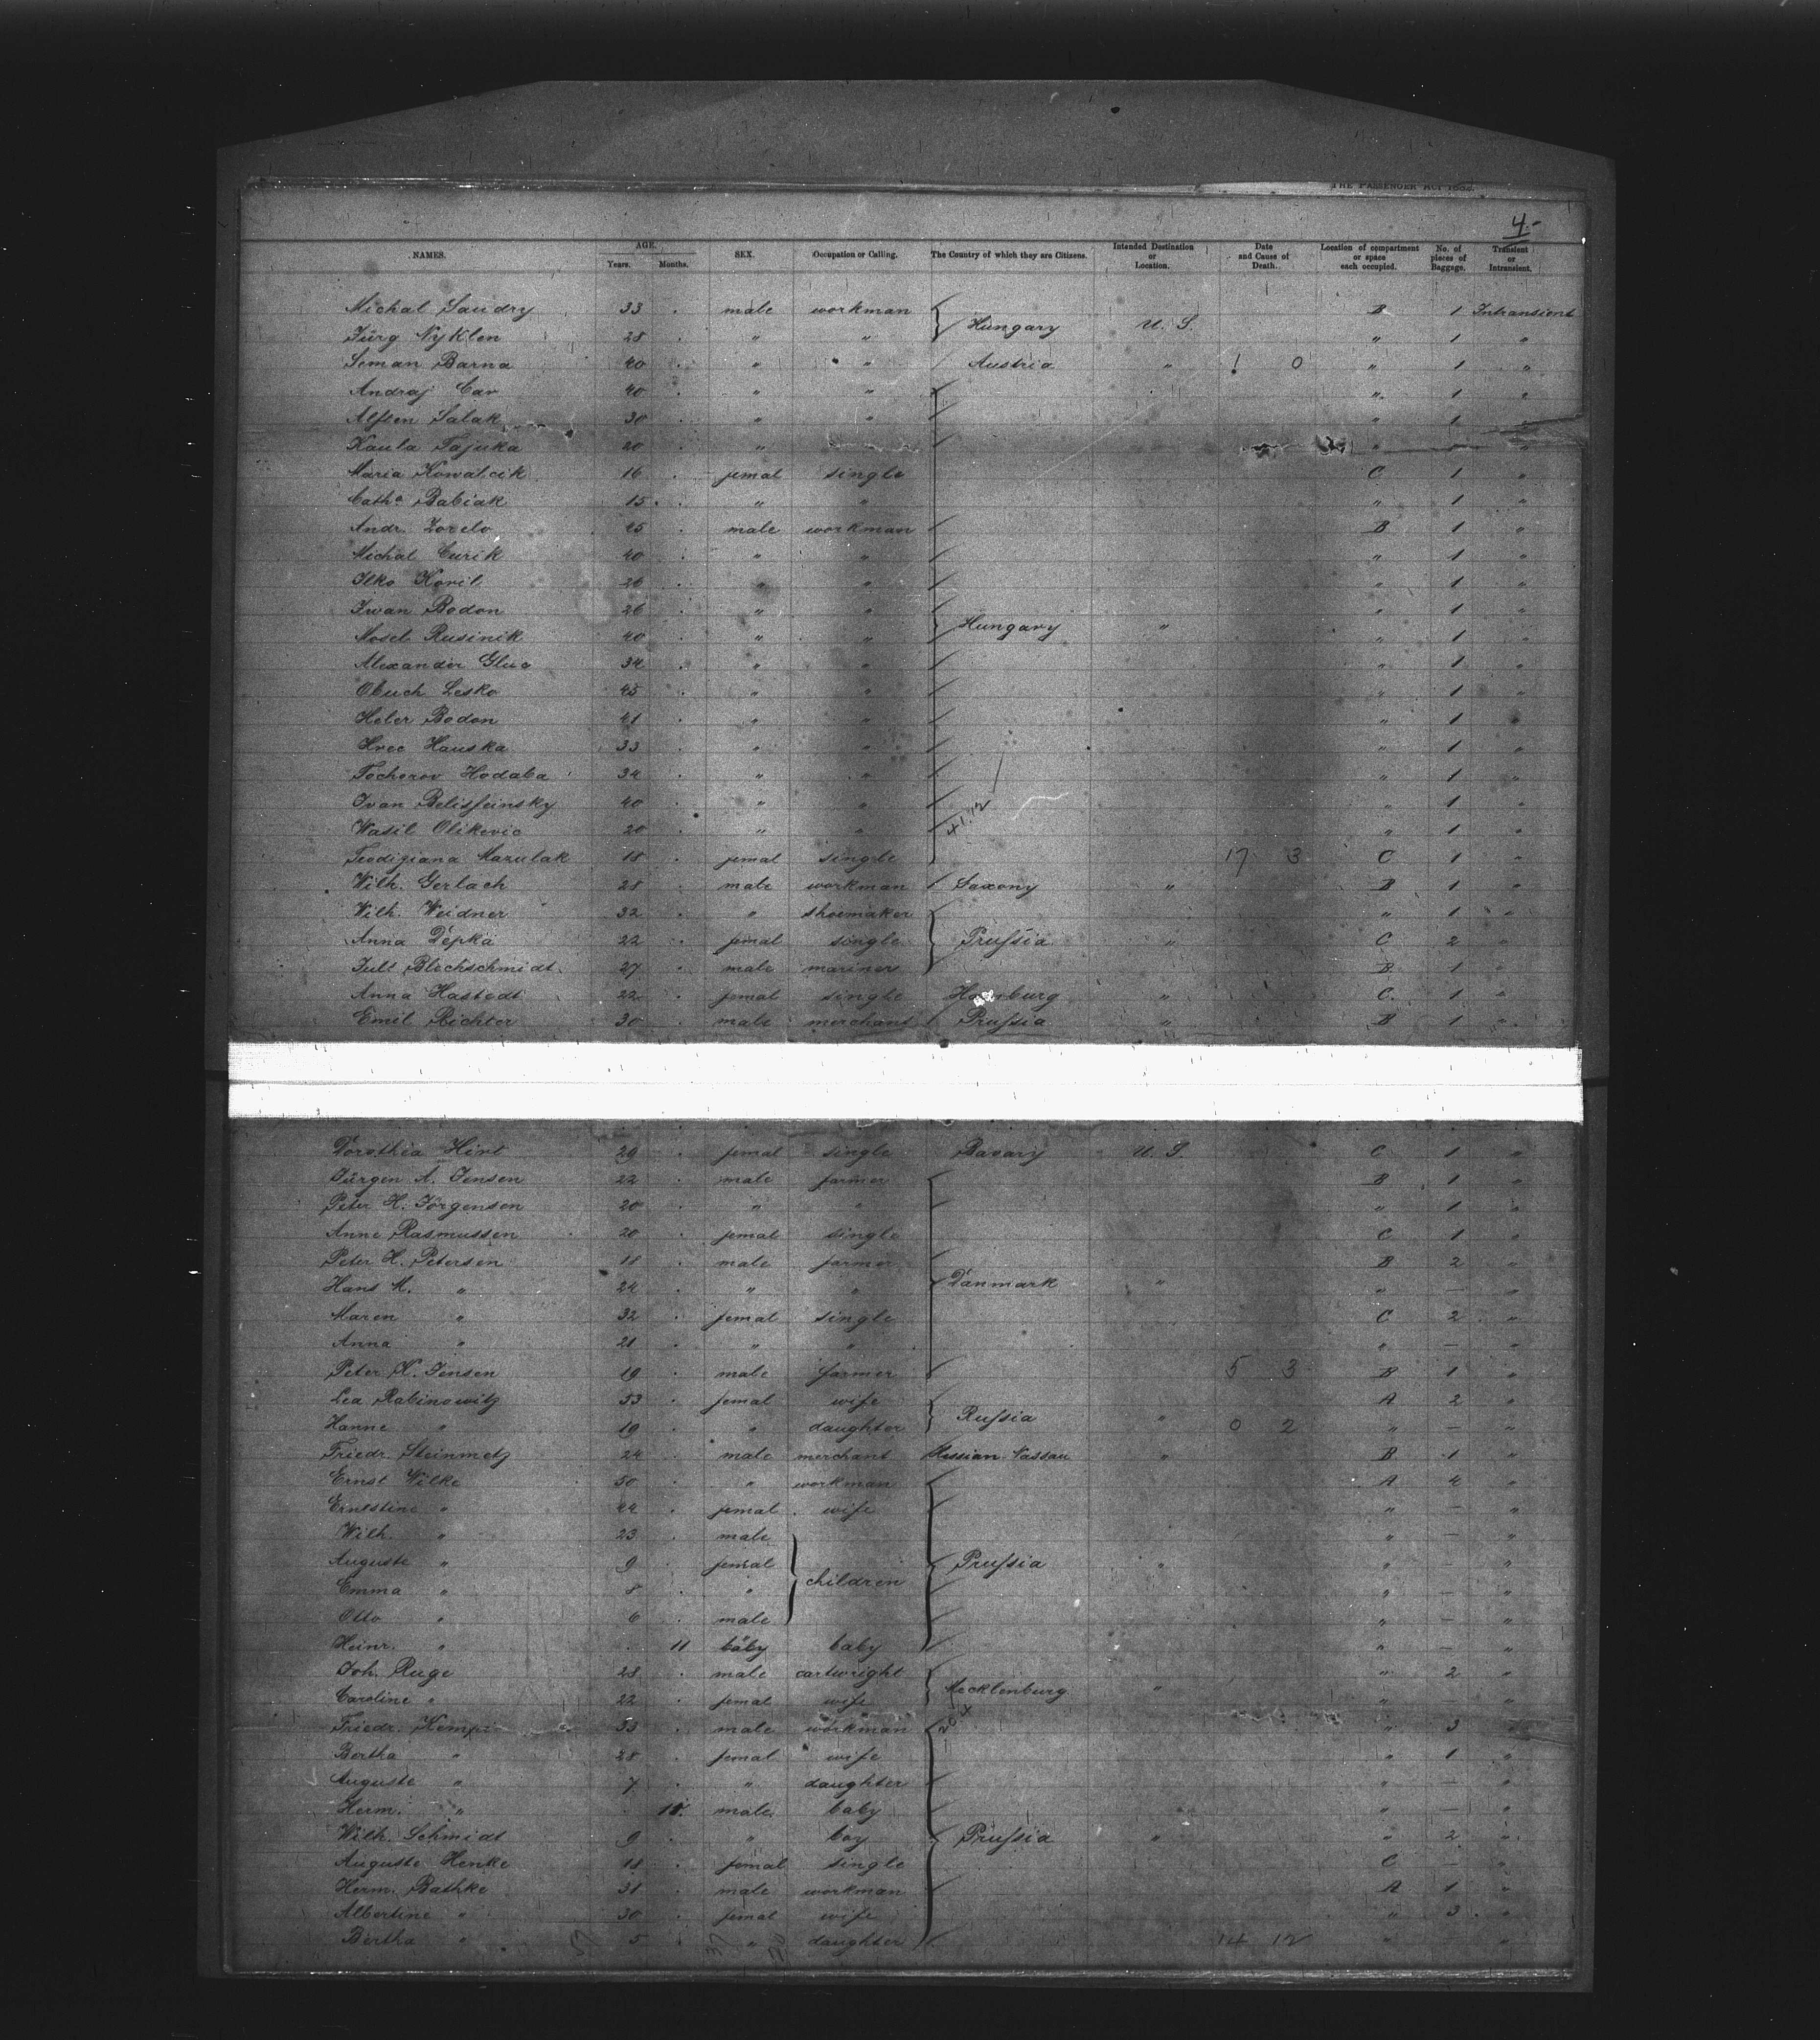 THE PASSENGER ACT 1882.
4.
NAMES. AGE. Years. Months. SEX. Occupation or Calling. The Country of which they are Citizens. Intended Destination or Location. Date and Cause of Death. Location of compartment or space each occupied. No. of pieces of Baggage. Transient or Intransient.
Michal Saudry 33 . male workman B 1 Intransient
Hungary U. S.
Jürg Nyklen 28 . " " " 1 "
Seman Barna 40 . " " Austria " ! 0 " 1 "
Andraj Car 40 . " " " 1 "
Salak 30 . " " " 1 "
Kaula Tajuka 20 . " " "
Maria Kowalcik 16 . femal single C 1 "
Cathª Babiak 15 . " " " 1 "
Andr. Zorelo 45 male workman B 1 "
Michal Curik 40 . " " " 1 "
Ilko Koril 26 . " " " 1 "
Iwan Bodon 26 . " " " 1 "
Hungary "
Mosel Rusinik 40 . " " " 1 "
Alexander Gluc 34 . " " " 1 "
Obuch Lesko 45 . " " " 1 "
Heler Bodon 41 . " " " 1 "
Hrec Hauska 33 . " " " 1 "
Tochorov Hodaba 34 . " " " 1 "
Ivan 40 . " " " 1 "
41.12
Wasil Olikevic 20 . " " " 1 "
Mazulak 18 . femal single 17 3 C 1 "
Wilh. Gerlach 28 . male workman Saxony " B 1 "
Wilh. Weidner 32 . " shoemaker " 1 "
Anna Depka 22 . femal single Prußia " C 2 "
Jult Blechschmidt 27 . male mariner B 1 "
Anna Hastedt 22 . femal single " C. 1 "
Emil Richter 30 . male merchant Prußia " B 1 "
Dorothia Hirt 29 . femal single Bavary U. S. C 1 "
Jürgen A. Jensen 22 . male farmer B 1 "
Peter H. Jörgensen 20 . " " " 1 "
Anne Rasmussen 20 . femal single C 1 "
Peter H. Petersen 18 . male farmer B 2 "
Hans M. " 24 . " " Danmark " " — "
Maren " 32 . femal single C 2 "
Anna " 21 . " " " — "
Peter N. Jensen 19 . male farmer 5 3 B 1 "
Lea Rabinowitz 53 . femal wife A 2 "
Rußia "
Hanne " 19 . " daughter 0 2 " — "
Friedr. Steinmetz 24 . male merchant Hessian Nassau " B 1 "
Ernst Wilke 50 . " workman A 4 "
Ernestine " 44 . femal wife " — "
Wilh. " 23 . male " — "
Auguste " 9 . femal Prußia " " "
children
Emma " 8 . " " — "
Otto " 6 . male " — "
Heinr. " . 11 baby baby " — "
Joh. Ruge 28 . male cartwright " 2 "
Mecklenburg "
Caroline " 22 . femal wife " — "
Friedr. 33 . male workman " 3 "
Bertha " 28 . femal wife " 1 "
Auguste " 7 . " daughter " — "
Herm. " . 10 male baby " — "
Wilh. Schmidt 9 . " boy Prußia " " 2 "
Auguste Henke 18 . femal single C — "
Herm. Bathke 31 . male workman A 1 "
Albertine " 30 . femal wife " 3 "
Bertha " 5 . " daughter 14 12 " "